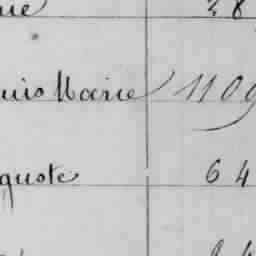 ue 38
uis Marie 1109
guste 64